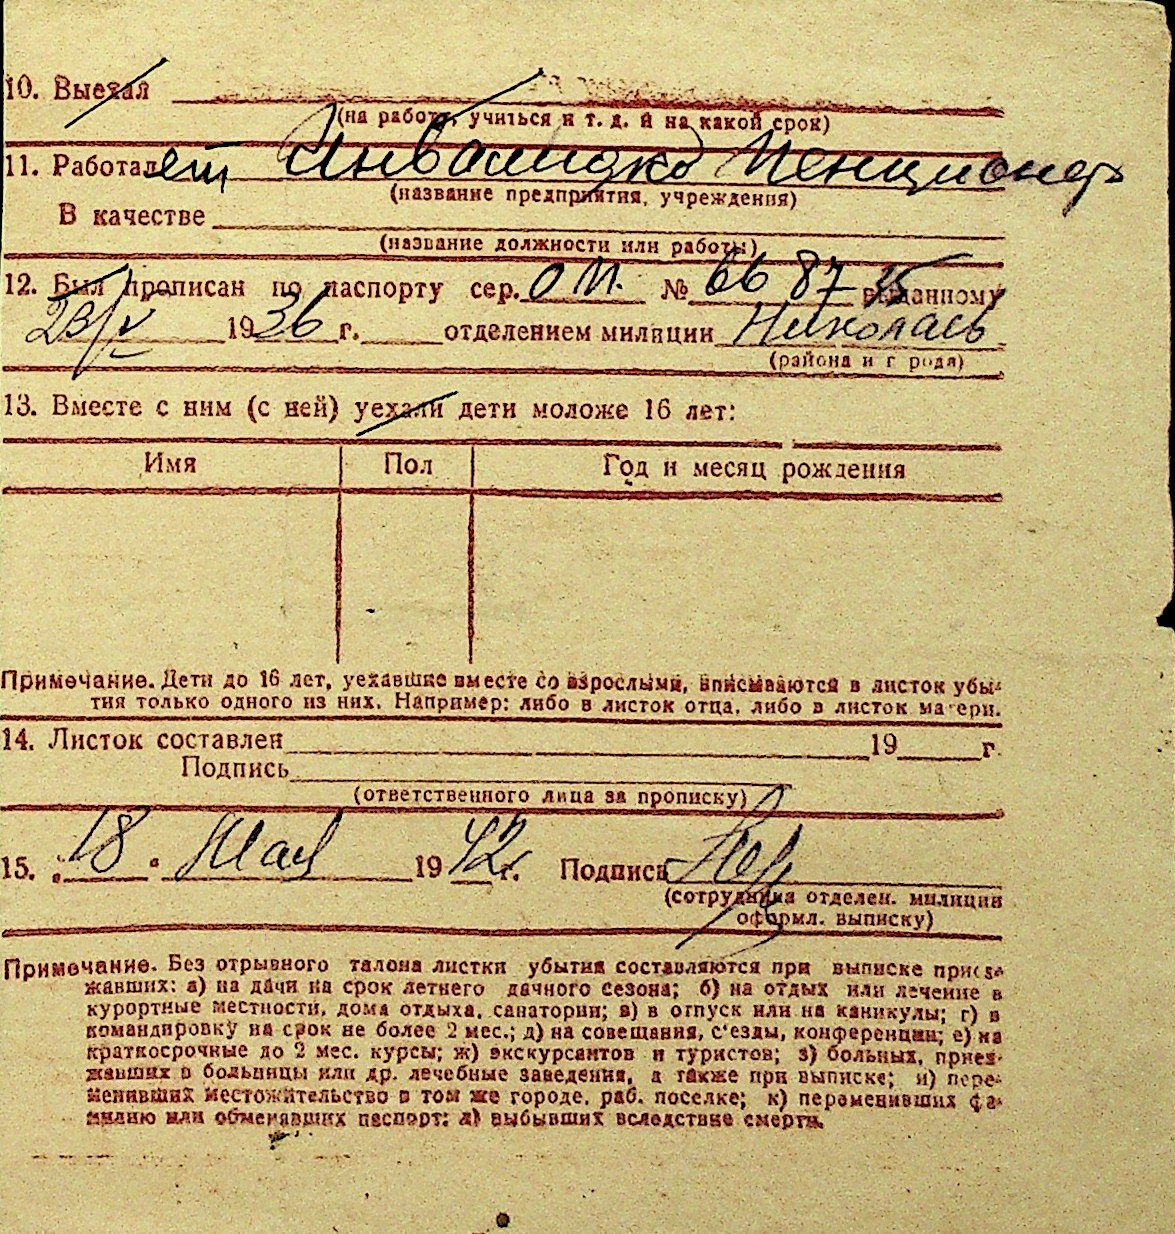 10. Выехал
(на работу, учиться и т. д. и на какой срок)
11. Работает Инвалидка Пенционер
(название предприятия, учреждения)
В качестве
(название должности или работы)
12. Был прописан по паспорту сер. ОМ. № 668735 выданному
23/V 1936 г. отделением милиции Николаев
(района и города)
13. Вместе с ним (с ней) уехали дети моложе 16 лет:
Имя Пол Год и месяц рождения
Примечание. Дети до 16 лет, уехавшие вместе со взрослыми, вписываются в листок убы-
тия только одного из них. Например: либо в листок отца, либо в листок матери.
14. Листок составлен 19 г.
Подпись
(ответственного лица за прописку)
15. „18" Мая 1942 г. Подпись
(сотрудника отделен. милиции
оформл. выписку)
Примечание. Без отрывного талона листки убытия составляются при выписке приез-
жавших: а) на дачи на срок летнего дачного сезона; б) на отдых или лечение в
курортные местности, дома отдыха, санатории; в) в отпуск или на каникулы; г) в
командировку на срок не более 2 мес.; д) на совещания, с'езды, конференции; е) на
краткосрочные до 2 мес. курсы; ж) экскурсантов и туристов; з) больных, приез-
жавших в больницы или др. лечебные заведения, а также при выписке; и) пере-
менивших местожительство в том же городе, раб. поселке; к) переменивших фа-
милию или обменявших паспорт; л) выбывших вследствие смерти.